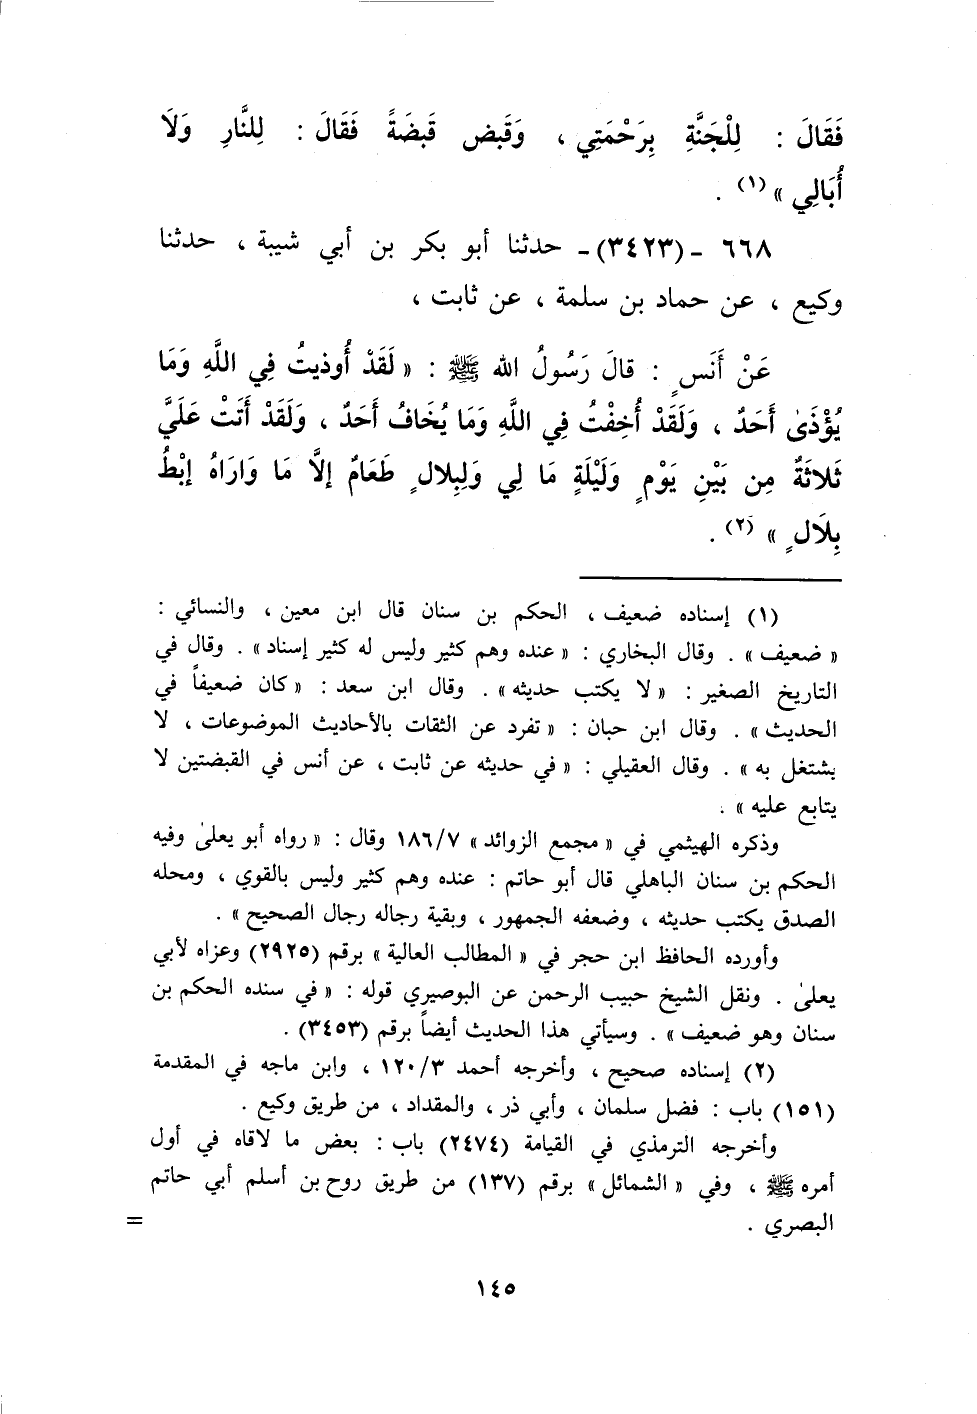 فَقَالَ : لِلْجَنَّةِ بِرَحْمَتِي ، وَقَبض قَبضَةً فَقَالَ : لِلنَّارِ وَلَا
أُبَالِي » (١) .
٦٦٨ ـ (٣٤٢٣) ـ حدثنا أبو بكر بن أبي شيبة ، حدثنا
وكيع ، عن حماد بن سلمة ، عن ثابت ،
عَنْ أَنَسٍ : قالَ رَسُولُ الله ﷺ : « لَقَدْ أُوذيتُ فِي اللَّهِ وَمَا
يُؤْذَىٰ أَحَدٌ ، وَلَقَدْ أُخِفْتُ فِي اللَّهِ وَمَا يُخَافُ أَحَدٌ ، وَلَقَدْ أَتَتْ عَلَيَّ
ثَلاثَةٌ مِن بَيْنِ يَوْمٍ وَلَيْلَةٍ مَا لِي وَلِبِلالٍ طَعَامٌ إلَّا مَا وَارَاهُ إبْطُ
بِلَالٍ » (٢) .
(١) إسناده ضعيف ، الحكم بن سنان قال ابن معين ، والنسائي :
« ضعيف » . وقال البخاري : « عنده وهم كثير وليس له كثير إسناد » . وقال في
التاريخ الصغير : « لا يكتب حديثه » . وقال ابن سعد : « كان ضعيفاً في
الحديث » . وقال ابن حبان : « تفرد عن الثقات بالأحاديث الموضوعات ، لا
يشتغل به » . وقال العقيلي : « في حديثه عن ثابت ، عن أنس في القبضتين لا
يتابع عليه » .
وذكره الهيثمي في « مجمع الزوائد » ١٨٦/٧ وقال : « رواه أبو يعلىٰ وفيه
الحكم بن سنان الباهلي قال أبو حاتم : عنده وهم كثير وليس بالقوي ، ومحله
الصدق يكتب حديثه ، وضعفه الجمهور ، وبقية رجاله رجال الصحيح » .
وأورده الحافظ ابن حجر في « المطالب العالية » برقم (٢٩٢٥) وعزاه لأبي
يعلىٰ . ونقل الشيخ حبيب الرحمن عن البوصيري قوله : « في سنده الحكم بن
سنان وهو ضعيف » . وسيأتي هذا الحديث أيضاً برقم (٣٤٥٣) .
(٢) إسناده صحيح ، وأخرجه أحمد ١٢٠/٣ ، وابن ماجه في المقدمة
(١٥١) باب : فضل سلمان ، وأبي ذر ، والمقداد ، من طريق وكيع .
وأخرجه الترمذي في القيامة (٢٤٧٤) باب : بعض ما لاقاه في أول
أمره ﷺ ، وفي « الشمائل » برقم (١٣٧) من طريق روح بن أسلم أبي حاتم
البصري . =
١٤٥